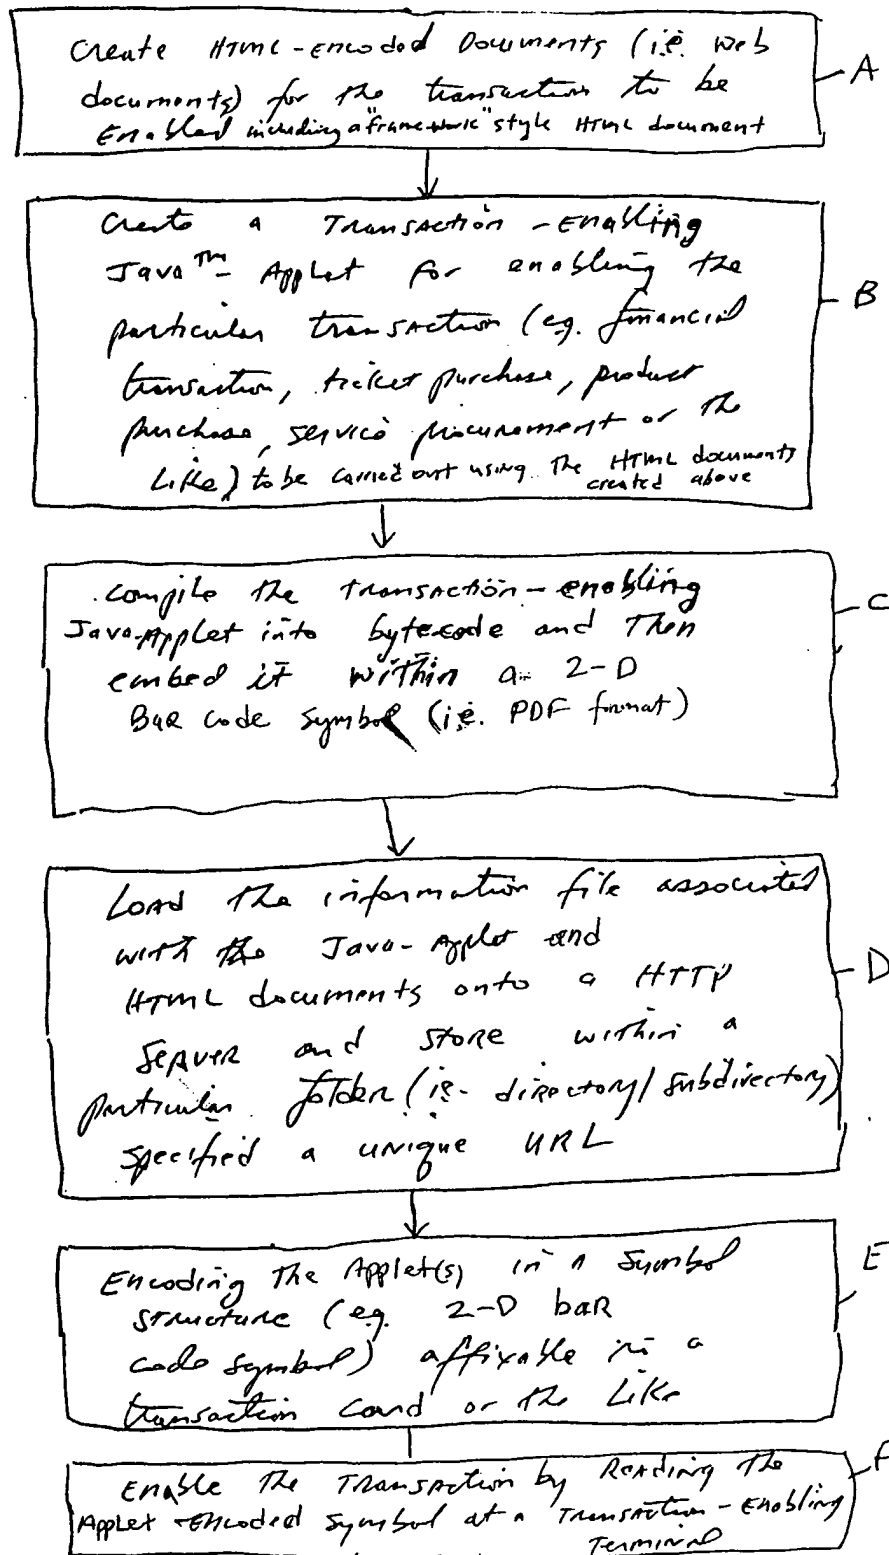 Create HTML-Encoded Documents (i.e. web
documents) for the transaction to be
Enabled including a "framework" style HTML document
A
Create a Transaction-Enabling
Java™- Applet for enabling the
particular transaction (e.g. financial
transaction, ticket purchase, product
purchase, service procurement or the
Like) to be carried out using the HTML documents
created above
B
Compile the transaction-enabling
Java-Applet into bytecode and then
embed it within a 2-D
Bar code symbol (i.e. PDF format)
C
Load the information file associated
with the Java-Applet and
HTML documents onto a HTTP
Server and store within a
particular folder (ie- directory/subdirectory)
specified a unique URL
D
Encoding the Applet(s) in a symbol
structure (eg. 2-D bar
code symbol) affixable in a
transaction card or the Like
E
Enable the Transaction by Reading the
Applet-Encoded Symbol at a Transaction-Enabling
Terminal
F